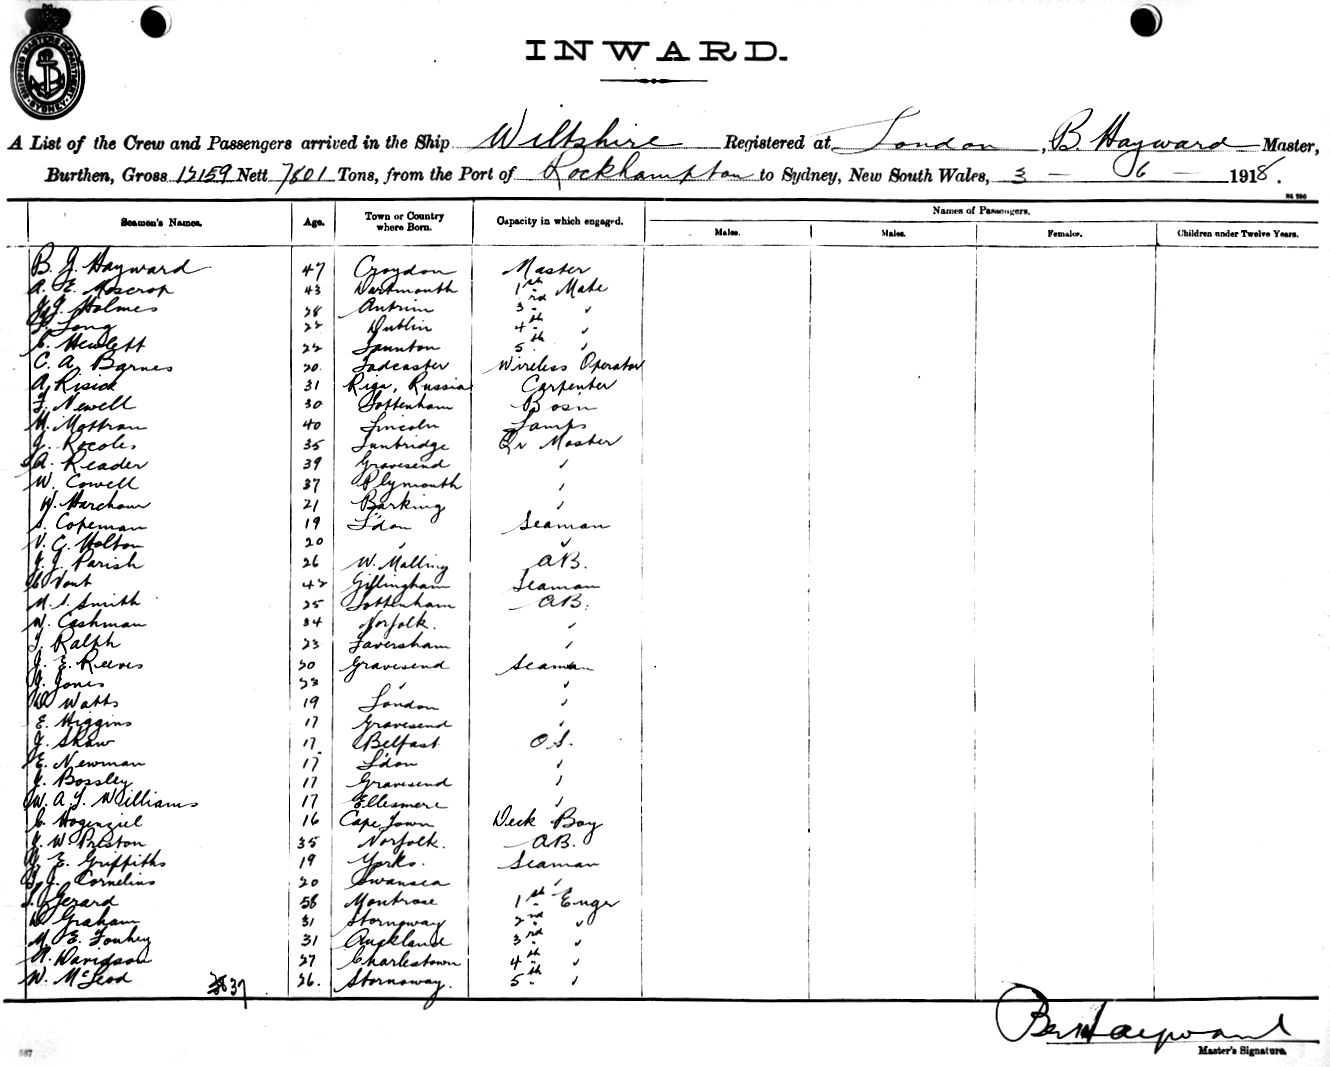 SHIPPING MASTER'S DEPARTMENT SYDNEY
INWARD.
A List of the Crew and Passengers arrived in the Ship Wiltshire Registered at London, B. Hayward Master,
Burthen, Gross 12159 Nett 7601 Tons, from the Port of Rockhampton to Sydney, New South Wales, 3 - 6 - 1918.
Seamen's Names. Age. Town or Country where Born. Capacity in which engaged. Names of Passengers.
Males. Males. Females. Children under Twelve Years.
B. G. Hayward 47 Croydon Master
A. E. Moscrop 43 Dartmouth 1st Mate
Holmes 28 Antrim 3rd "
Long 22 Dublin 4th "
Hewlett 22 Taunton 5th "
C. A. Barnes 20 Tadcaster Wireless Operator
A. Risick 31 Riga, Russia Carpenter
Newell 30 Tottenham Bosn
M. Mottran 40 Lincoln Lamps
J. Rocoles 35 Tunbridge Qr Master
A. Reader 39 Gravesend "
W. Cowell 37 Plymouth "
W. Marcham 21 Barking "
S. Copeman 19 L'don Seaman
V. C. Holton 20 " "
J. J. Parish 26 W. Malling A.B.
Vant 42 Gillingham Seaman
M. S. Smith 25 Tottenham A.B.
W. Cashman 34 Norfolk. "
Ralph 23 Faversham "
J. E. Reeves 20 Gravesend Seaman
J. Jones 23 " "
Watts 19 London "
E. Higgins 17 Gravesend "
J. Shaw 17 Belfast O.S.
E. Newman 17 L'don "
Bossley 17 Gravesend "
W. A. J. Williams 17 Ellesmere "
Hogenziel 16 Cape Town Deck Boy
W. Preston 35 Norfolk. A.B.
E. Griffiths 19 Yorks. Seaman
J. Cornelius 20 Swansea "
Gerard 58 Montrose 1st Engr
Graham 31 Stornoway 2nd "
M. E. Fouhey 31 Auckland 3rd "
A. Davidson 27 Charlestown 4th "
W. McLeod 26. Stornoway. 5th "
37
Hayward
Master's Signature.